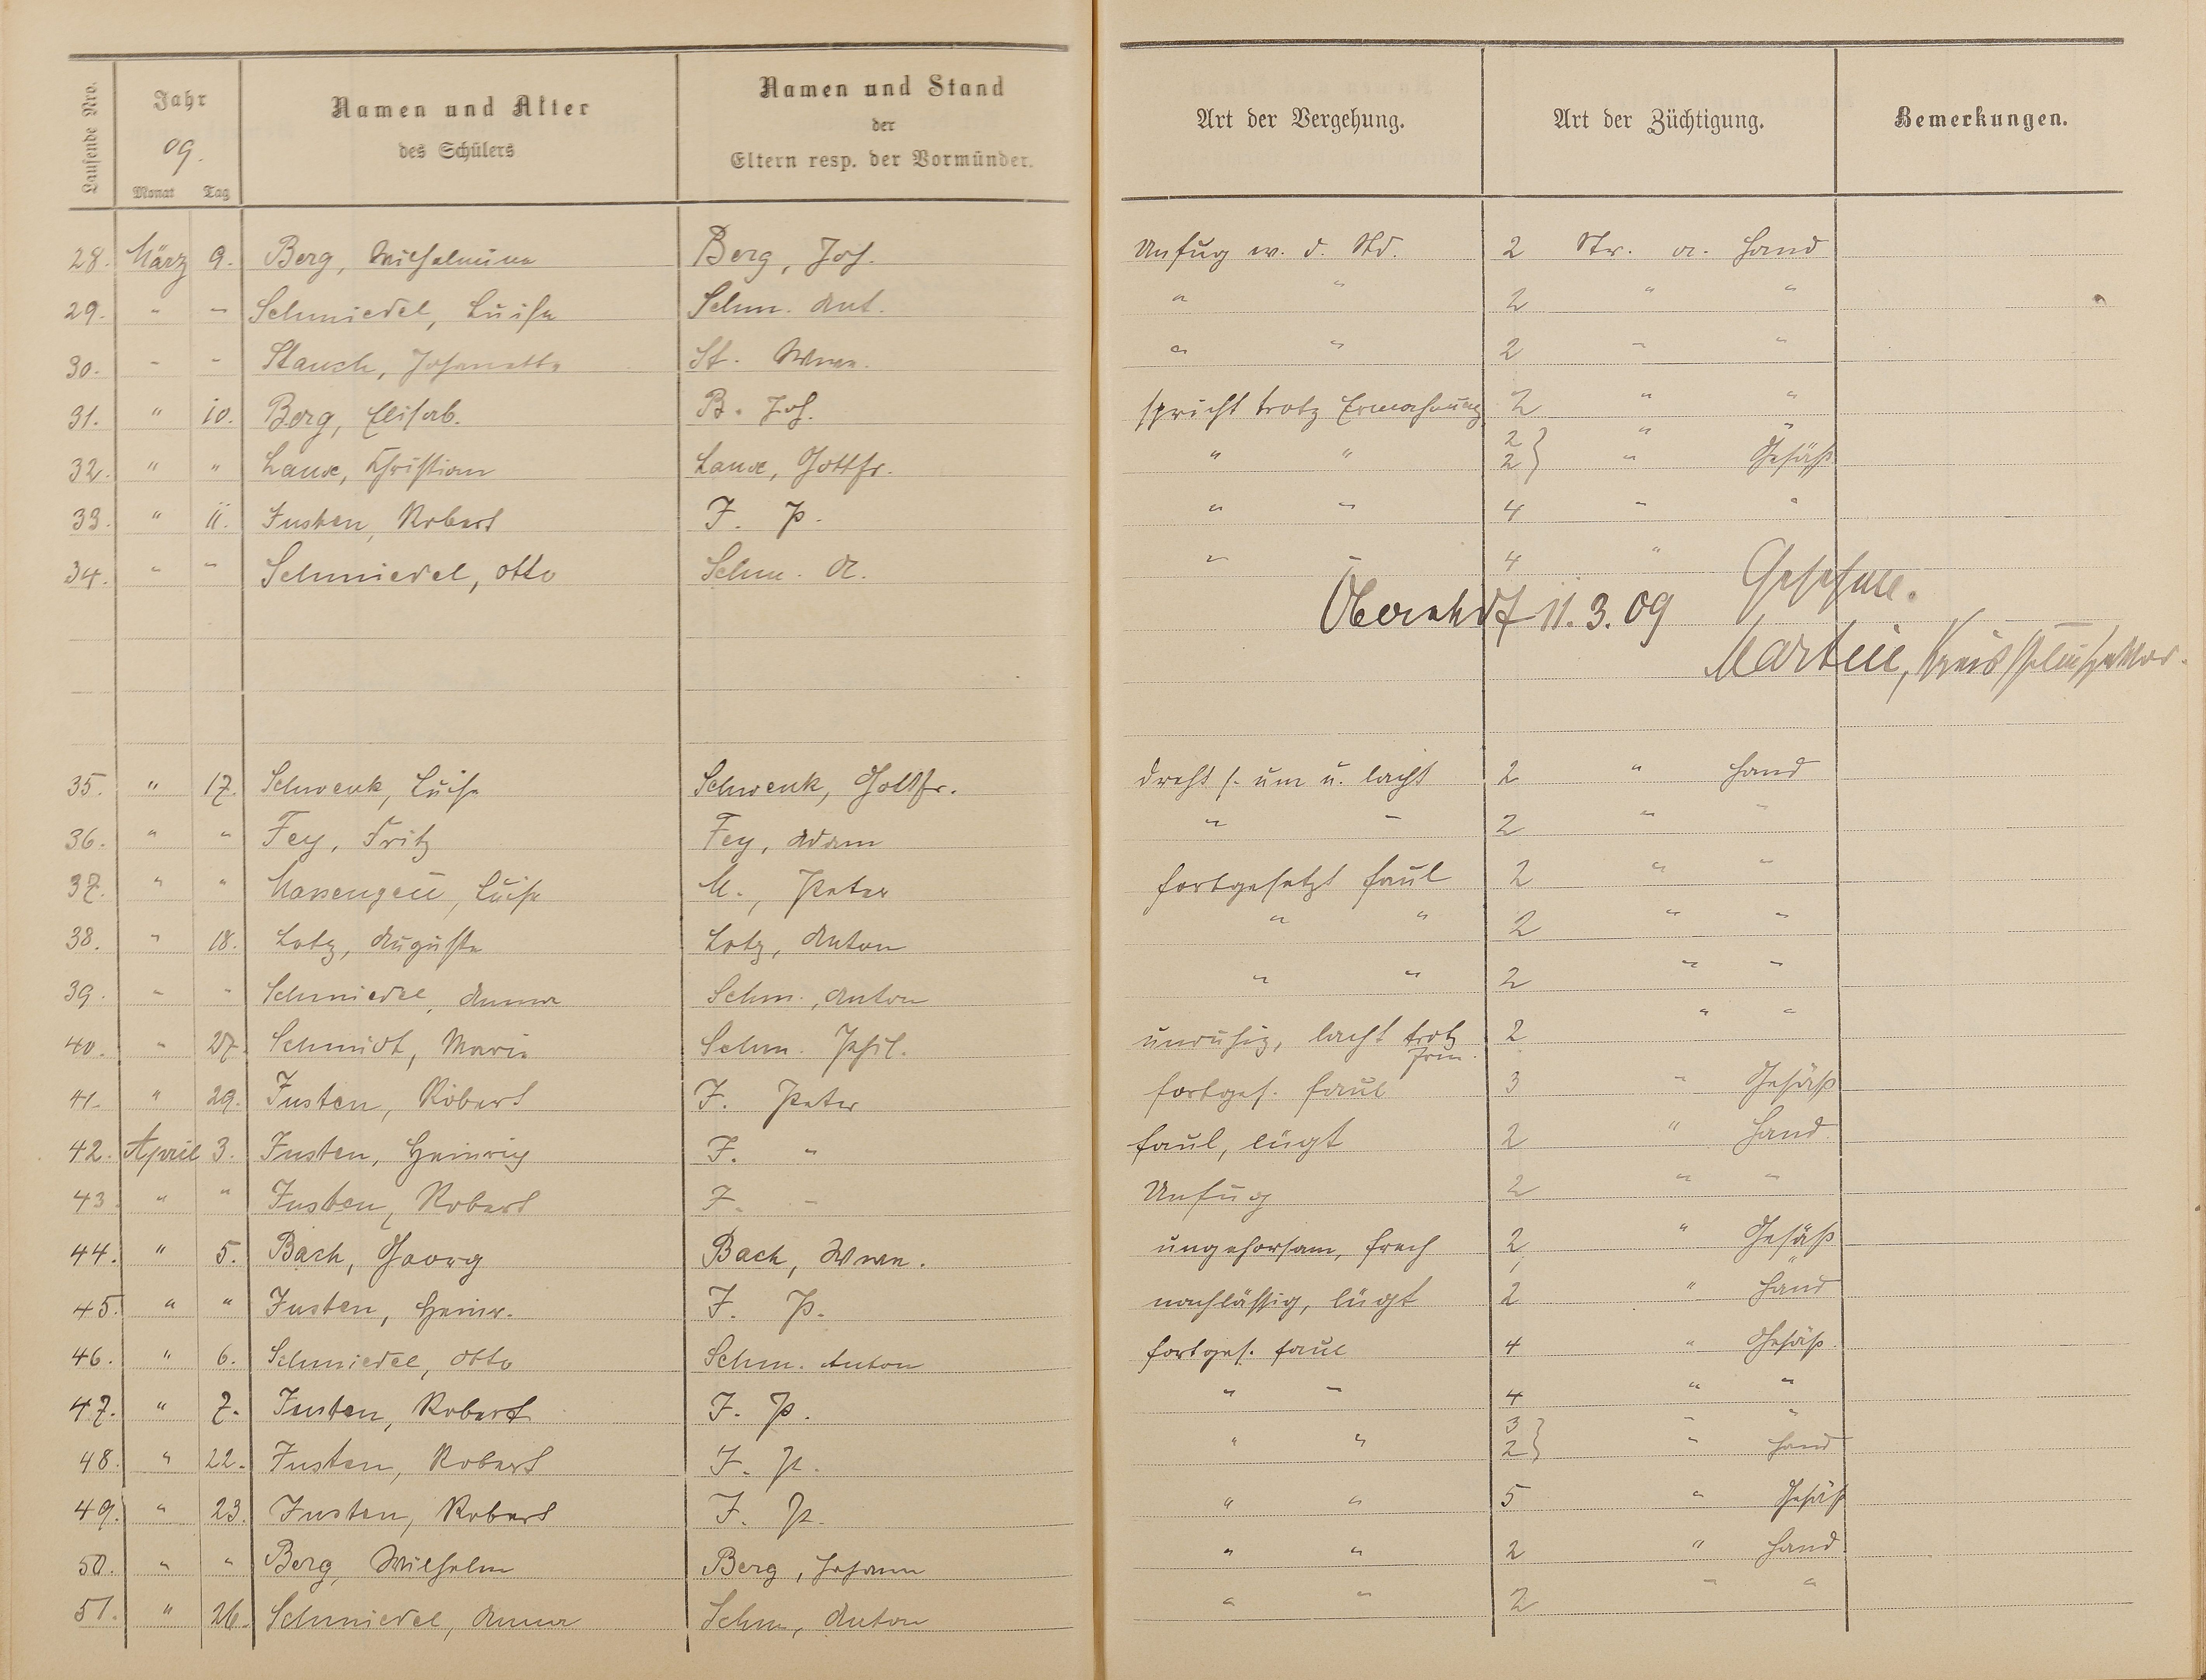 Laufende Nro.
Jahr
09.
Monat Tag
Namen und Alter
des Schülers
Namen und Stand
der
Eltern resp. der Vormünder.
Art der Vergehung.
Art der Züchtigung.
Bemerkungen.
28. März 9. Berg, Wilhelmine Berg, Joh. Unfug w. d. Std. 2 Str. a. Hand
29. " " Schmiedel, Luise Schm. Ant. " " 2 " "
30. " " Stauch, Johannette St. Wwe. " " 2 " "
31. " 10. Berg, Elisab. B. Joh. spricht trotz Ermahnung 2 " "
32. " " Laux, Christian Laux, Gottfr. " " 2 " "
2 " Gesäß
33. " 11. Justen, Robert J. P. " " 4 " "
34. " " Schmiedel, Otto Schm. A. " " 4 "
Gesehen.
11.3.09
Martin, Kreisschulinspektor.
35. " 17. Schwenk, Luise Schwenk, Gottfr. dreht s. um u. lacht 2 " Hand
36. " " Fey, Fritz Fey, Adam " " 2 " "
37. " " Massengeil, Luise M., Peter fortgesetzt faul 2 " "
38. " 18. Lotz, Auguste Lotz, Anton " " 2 " "
39. " " Schmiedel, Anna Schm., Anton " " 2 " "
40. " 27. Schmidt, Marie Schm. Phil. unruhig, lacht trotz 2 " "
41. " 29. Justen, Robert J. Peter fortges. faul 3 " Gesäß
42. April 3. Justen, Heinrich J. " faul, lügt 2 " Hand
43. " " Justen, Robert J. " Unfug 2 " "
44. " 5. Bach, Georg Bach, Wwe. ungehorsam, frech 2 " Gesäß
45. " " Justen, Heinr. J. P. nachlässig, lügt 2 " Hand
46. " 6. Schmiedel, Otto Schm. Anton fortges. faul 4 " Gesäß
47. " 7. Justen, Robert J. P. " " 4 " "
48. " 22. Justen, Robert J. P. " " 3 "
2 " Hand
49. " 23. Justen, Robert J. P. " " 5 " Gesäß
50. " " Berg, Wilhelm Berg, Johann " " 2 " Hand
51. " 26. Schmiedel, Anna Schm., Anton " " 2 " "